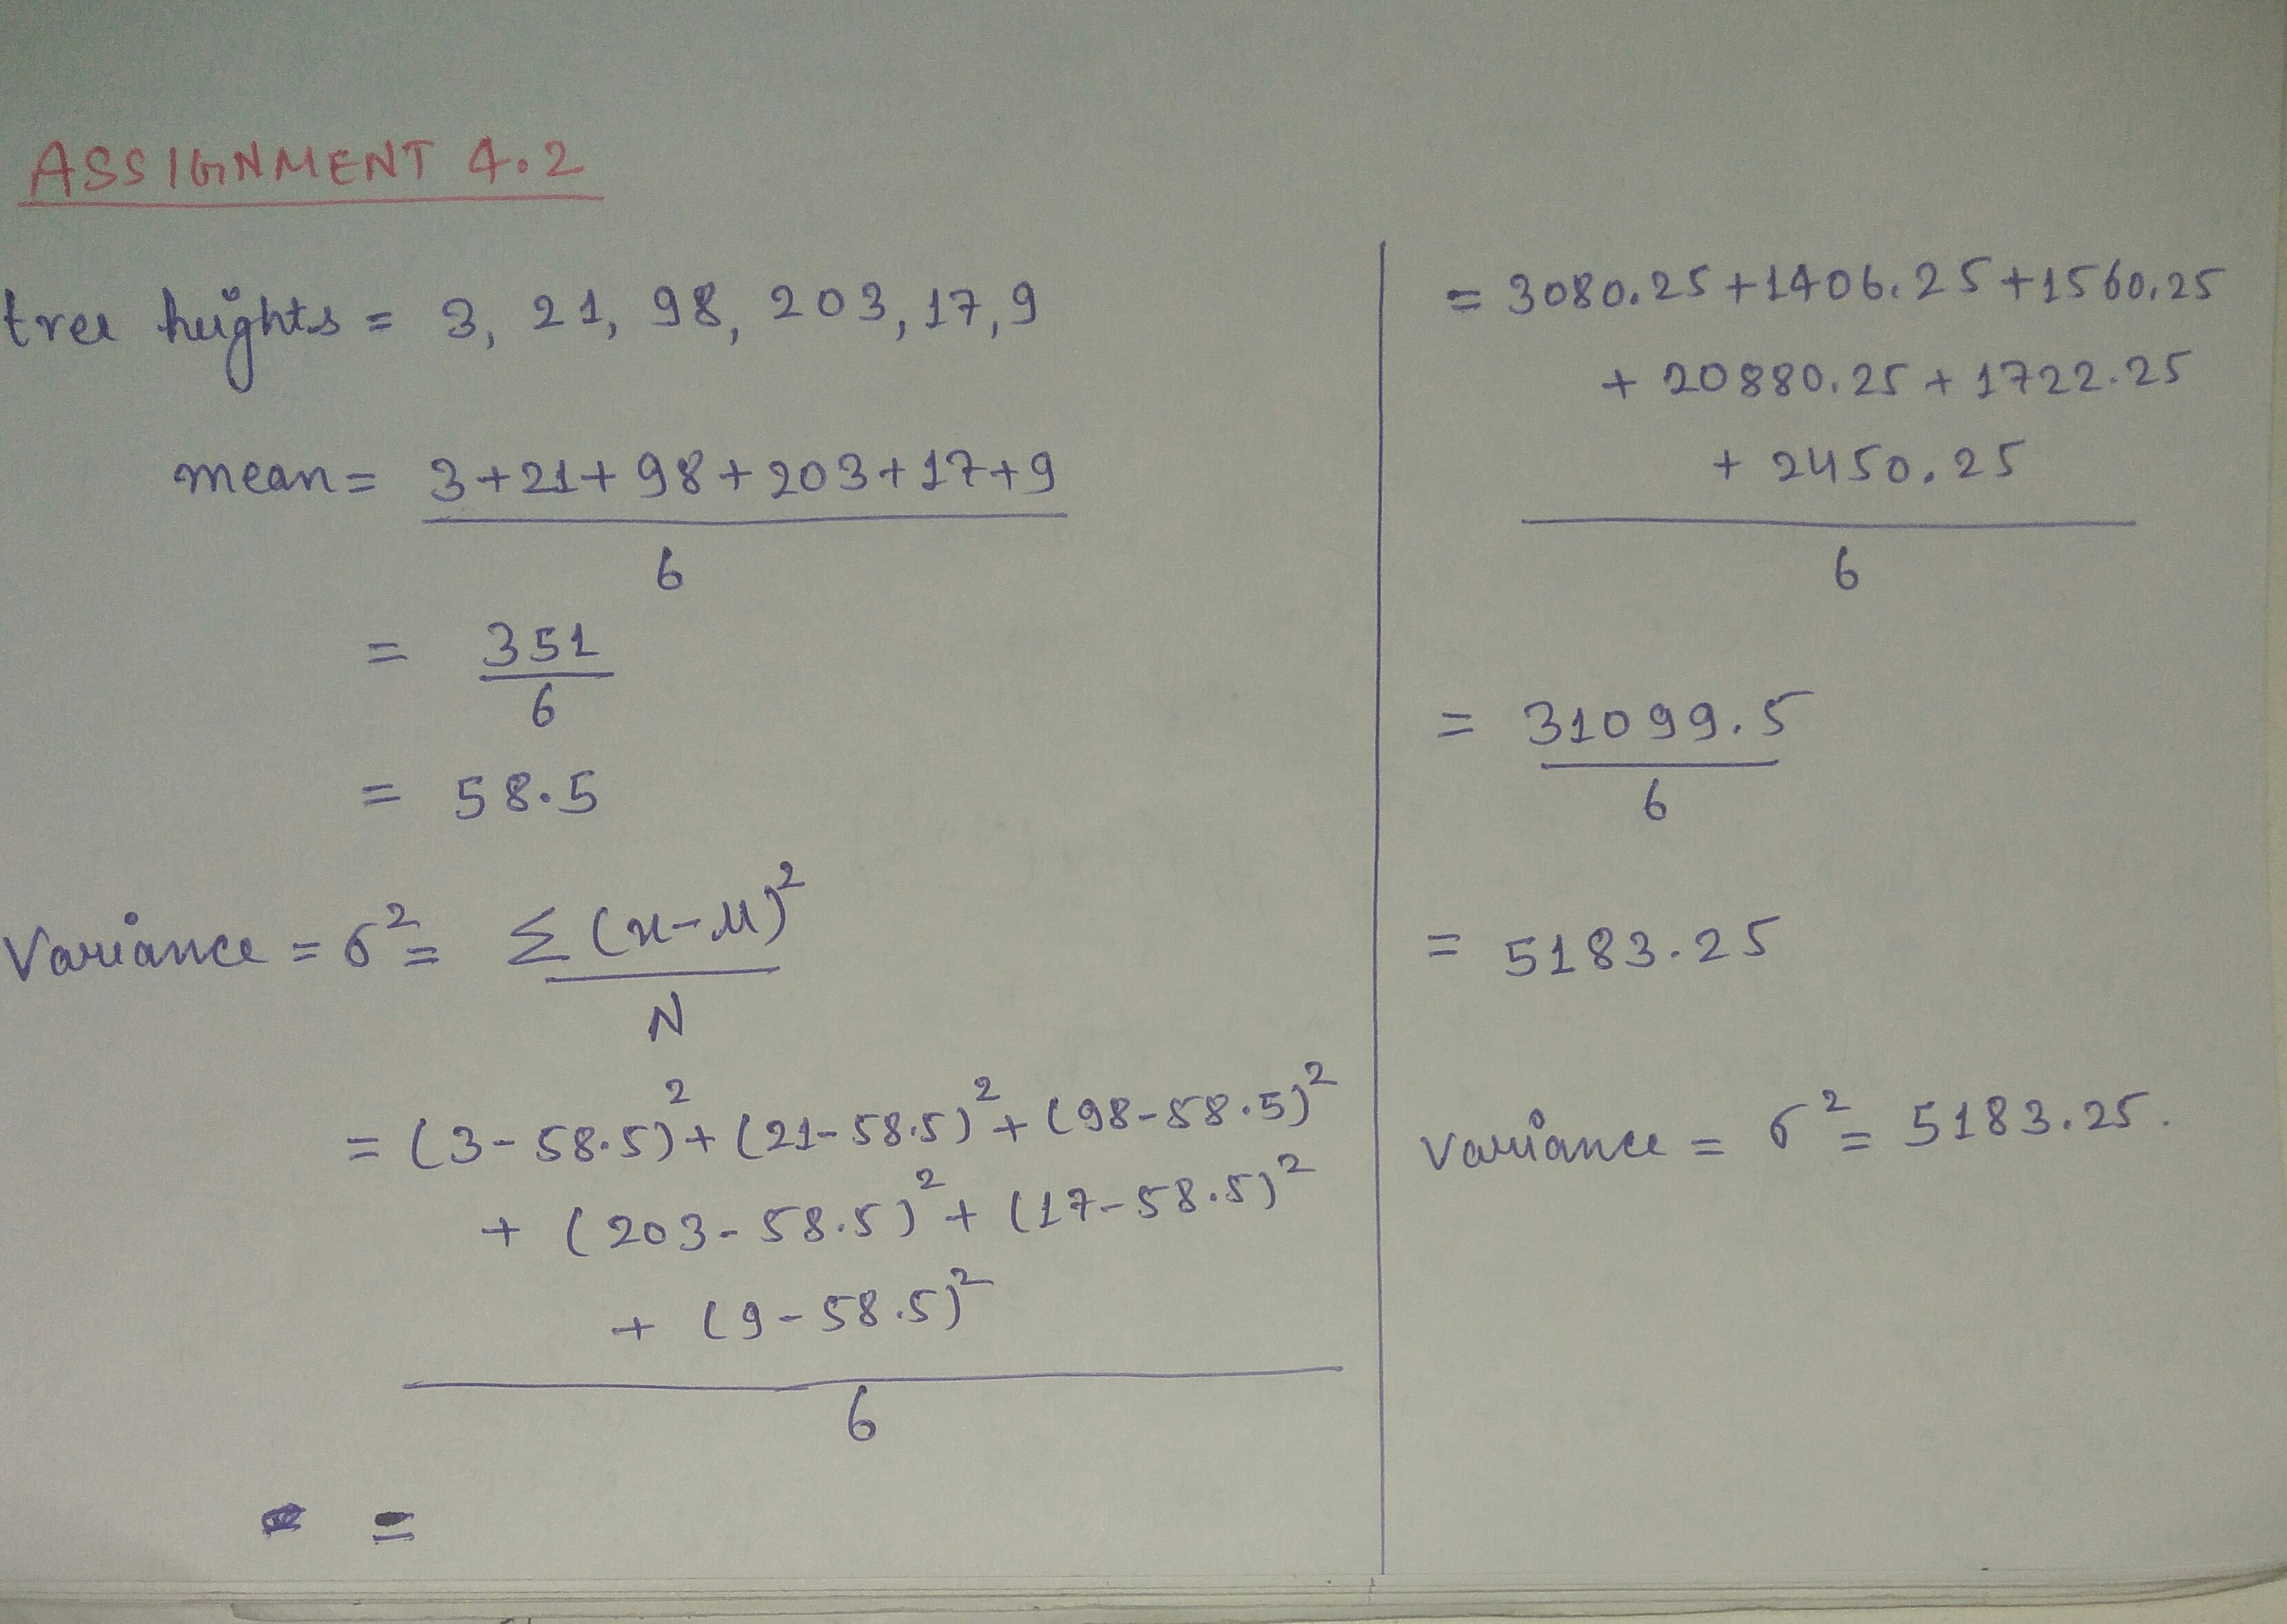 ASSIGNMENT 4.2
tree heights = 3, 21, 98, 203, 17, 9
mean = 3+21+98+203+17+9
6
= 351
6
= 58.5
Variance = σ² = Σ(x-μ)²
N
= (3-58.5)² + (21-58.5)² + (98-58.5)²
+ (203-58.5)² + (17-58.5)²
+ (9-58.5)²
6
=
= 3080.25+1406.25+1560.25
+ 20880.25 + 1722.25
+ 2450.25
6
= 31099.5
6
= 5183.25
Variance = σ² = 5183.25.